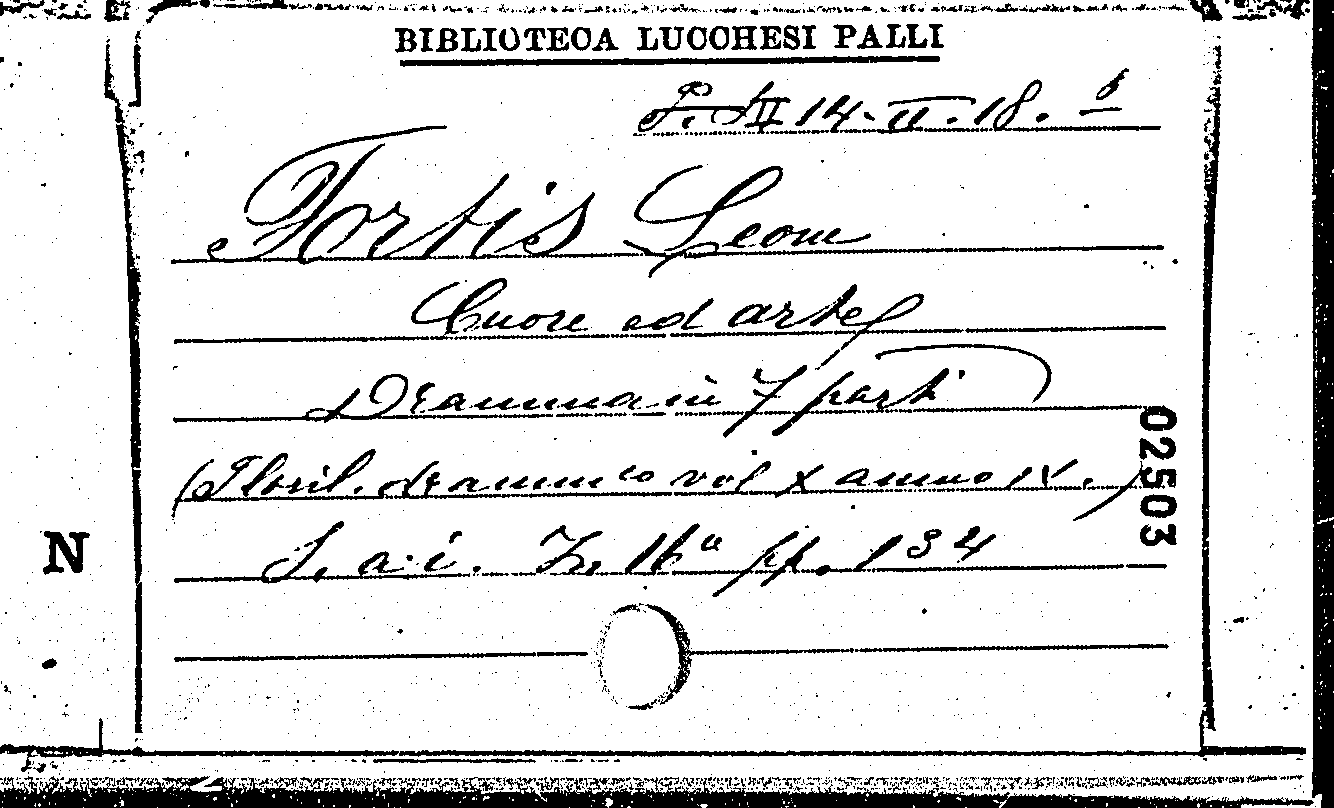 BIBLIOTECA LUCCHESI PALLI
14. II. 18.
Fortis Leone
Cuore ed arte
Dramma in 7 parti
(Floril. dramm co vol X anno IV.)
S. a. i. In 16° pp. 134
02503
N